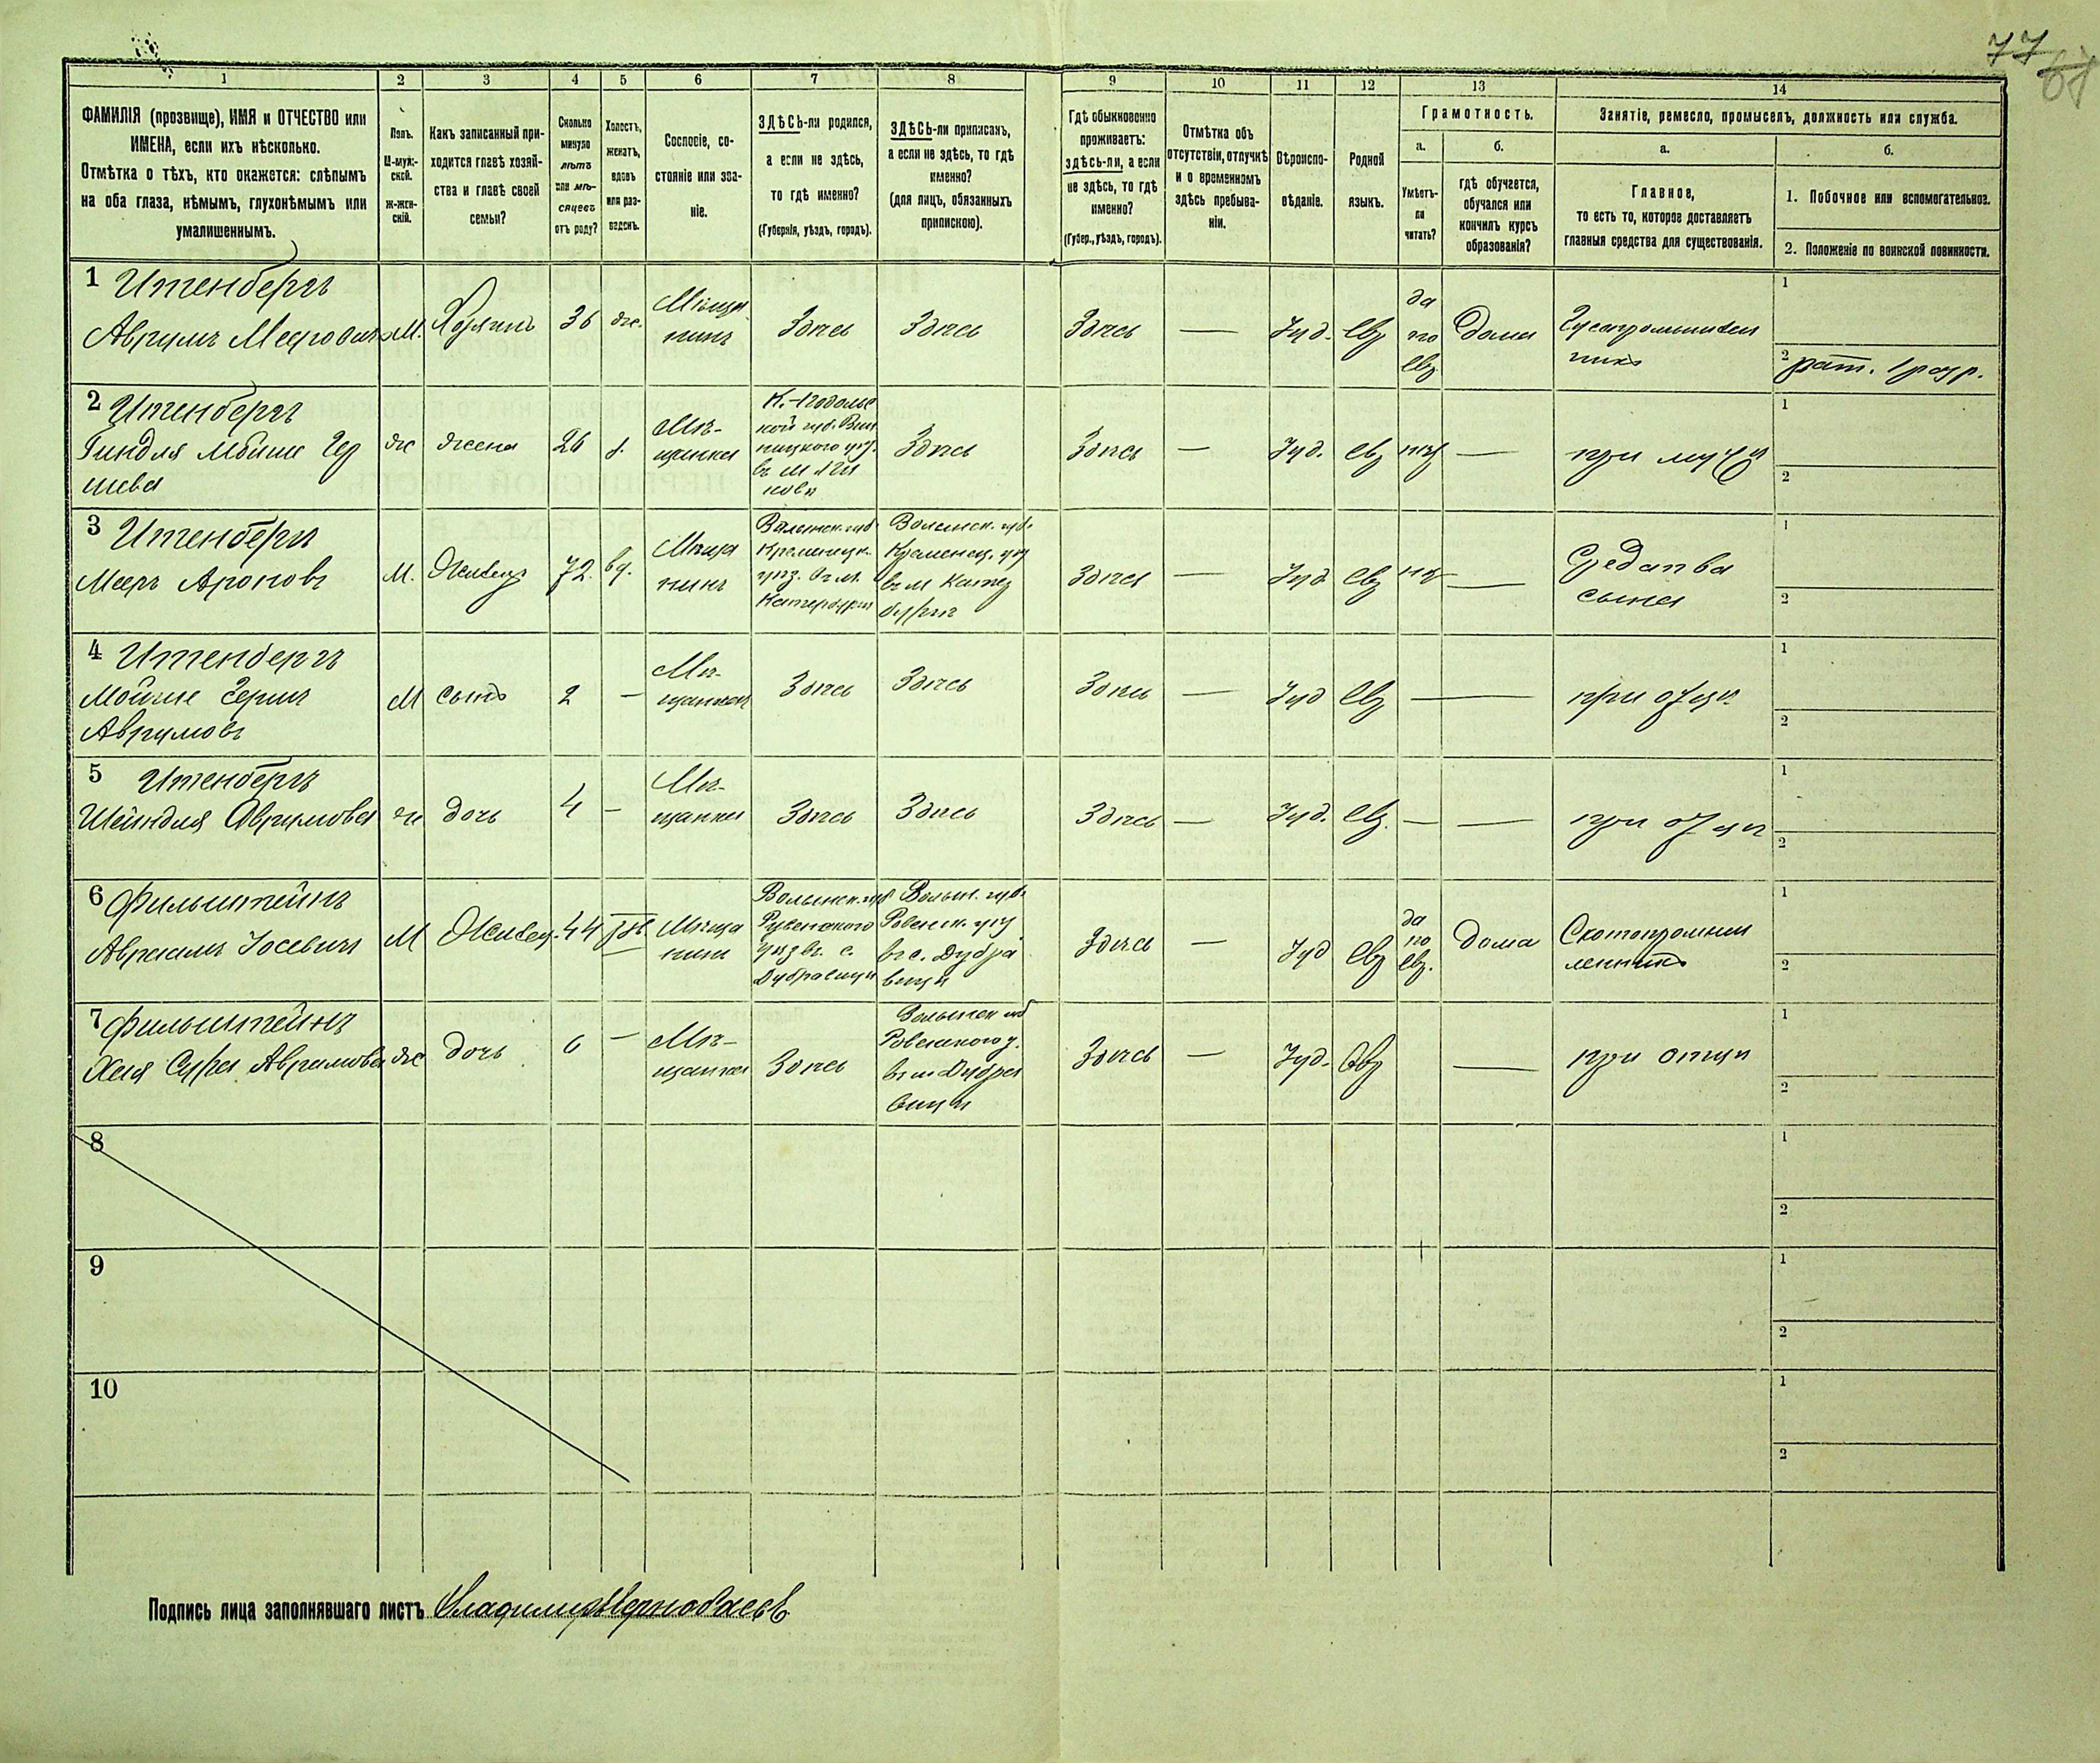 77
61
1 2 3 4 5 6 7 8 9 10 11 12 13 14
ФАМИЛІЯ (прозвище), ИМЯ и ОТЧЕСТВО или
ИМЕНА, если ихъ нѣсколько.
Отмѣтка о тѣхъ, кто окажется: слѣпымъ
на оба глаза, нѣмымъ, глухонѣмымъ или
умалишеннымъ.
Полъ.
М-муж-
ской.
Ж-жен-
скій.
Какъ записанный при-
ходится главѣ хозяй-
ства и главѣ своей
семьи?
Сколько
минуло
лѣтъ
или мѣ-
сяцевъ
отъ роду?
Холостъ,
женатъ,
вдовъ
или раз-
веденъ.
Сословіе, со-
стояніе или зва-
ніе.
ЗДѢСЬ-ли родился,
а если не здѣсь,
то гдѣ именно?
(Губернія, уѣздъ, городъ).
ЗДѢСЬ-ли приписанъ,
а если не здѣсь, то гдѣ
именно?
(для лицъ, обязанныхъ
припискою).
Гдѣ обыкновенно
проживаетъ:
здѣсь-ли, а если
не здѣсь, то гдѣ
именно?
(Губер., уѣздъ, городъ).
Отмѣтка объ
отсутствіи, отлучкѣ
и о временномъ
здѣсь пребыва-
ніи.
Вѣроиспо-
вѣданіе.
Родной
языкъ.
Грамотность.
а.
Умѣетъ-
ли
читать?
б.
гдѣ обучается,
обучался или
кончилъ курсъ
образованія?
Занятіе, ремесло, промыселъ, должность или служба.
а.
Главное,
то есть то, которое доставляетъ
главныя средства для существованія.
б.
1. Побочное или вспомогательное.
2. Положеніе по воинской повинности.
1 Итенбергъ
Аврумъ Мееровичъ М. Хозяинъ 36 ж. Мѣща
нинъ Здѣсь Здѣсь Здѣсь — Іуд. Евр да
по
Евр Дома
1
2 рат. 1 разр.
2 Итенбергъ
Гиндля Мойше Гер
шева ж жена 26 з. Мѣ-
щанка К.-Подольс
кой губ. Вин
ницкого уѣз.
въ м
Здѣсь Здѣсь — Іуд. Евр нѣт — при мужѣ
1
2
3 Итенбергъ
Мееръ Ароновъ М. Жилецъ 72. вд. Мѣща
нинъ Волынск. губ.
Кременецк.
уѣз. въ м.
Катербургѣ
Волынск. губ.
Кременец. уѣз
въ м Катер
бургѣ
Здѣсь — Іуд Евр нѣт — Средства
сына
1
2
4 Итенбергъ
Мойше Герш
Аврумовъ М сынъ 2 — Мѣ-
Здѣсь Здѣсь Здѣсь — Іуд Евр — при отцѣ
1
2
5 Итенбергъ
Шейндля Аврумова ж дочь 4 — Мѣ-
щанка Здѣсь Здѣсь Здѣсь — Іуд. Евр. — — при отцѣ
1
2
6 Фильштейнъ
Авраамъ Іосевичъ М Жилец. 44 Мѣща
нинъ Волынск. губ
Ровенского
уѣз въ с.
Дубровицѣ
Волын. губ.
Ровенск. уѣз
въ с. Дубра
вицѣ
Здѣсь — Іуд Евр да
по
Евр. дома Скотопромыш
ленникъ
1
2
7 Фильштейнъ
Хая Сура Аврамова ж дочь 6 — Мѣ-
щанка Здѣсь Волынск губ
Ровенского у.
въ м Дубра
вицѣ
Здѣсь — Іуд. Евр — при отцѣ
1
2
8
1
2
9
1
2
10
1
2
Подпись лица заполнявшаго листъ Владимиръ